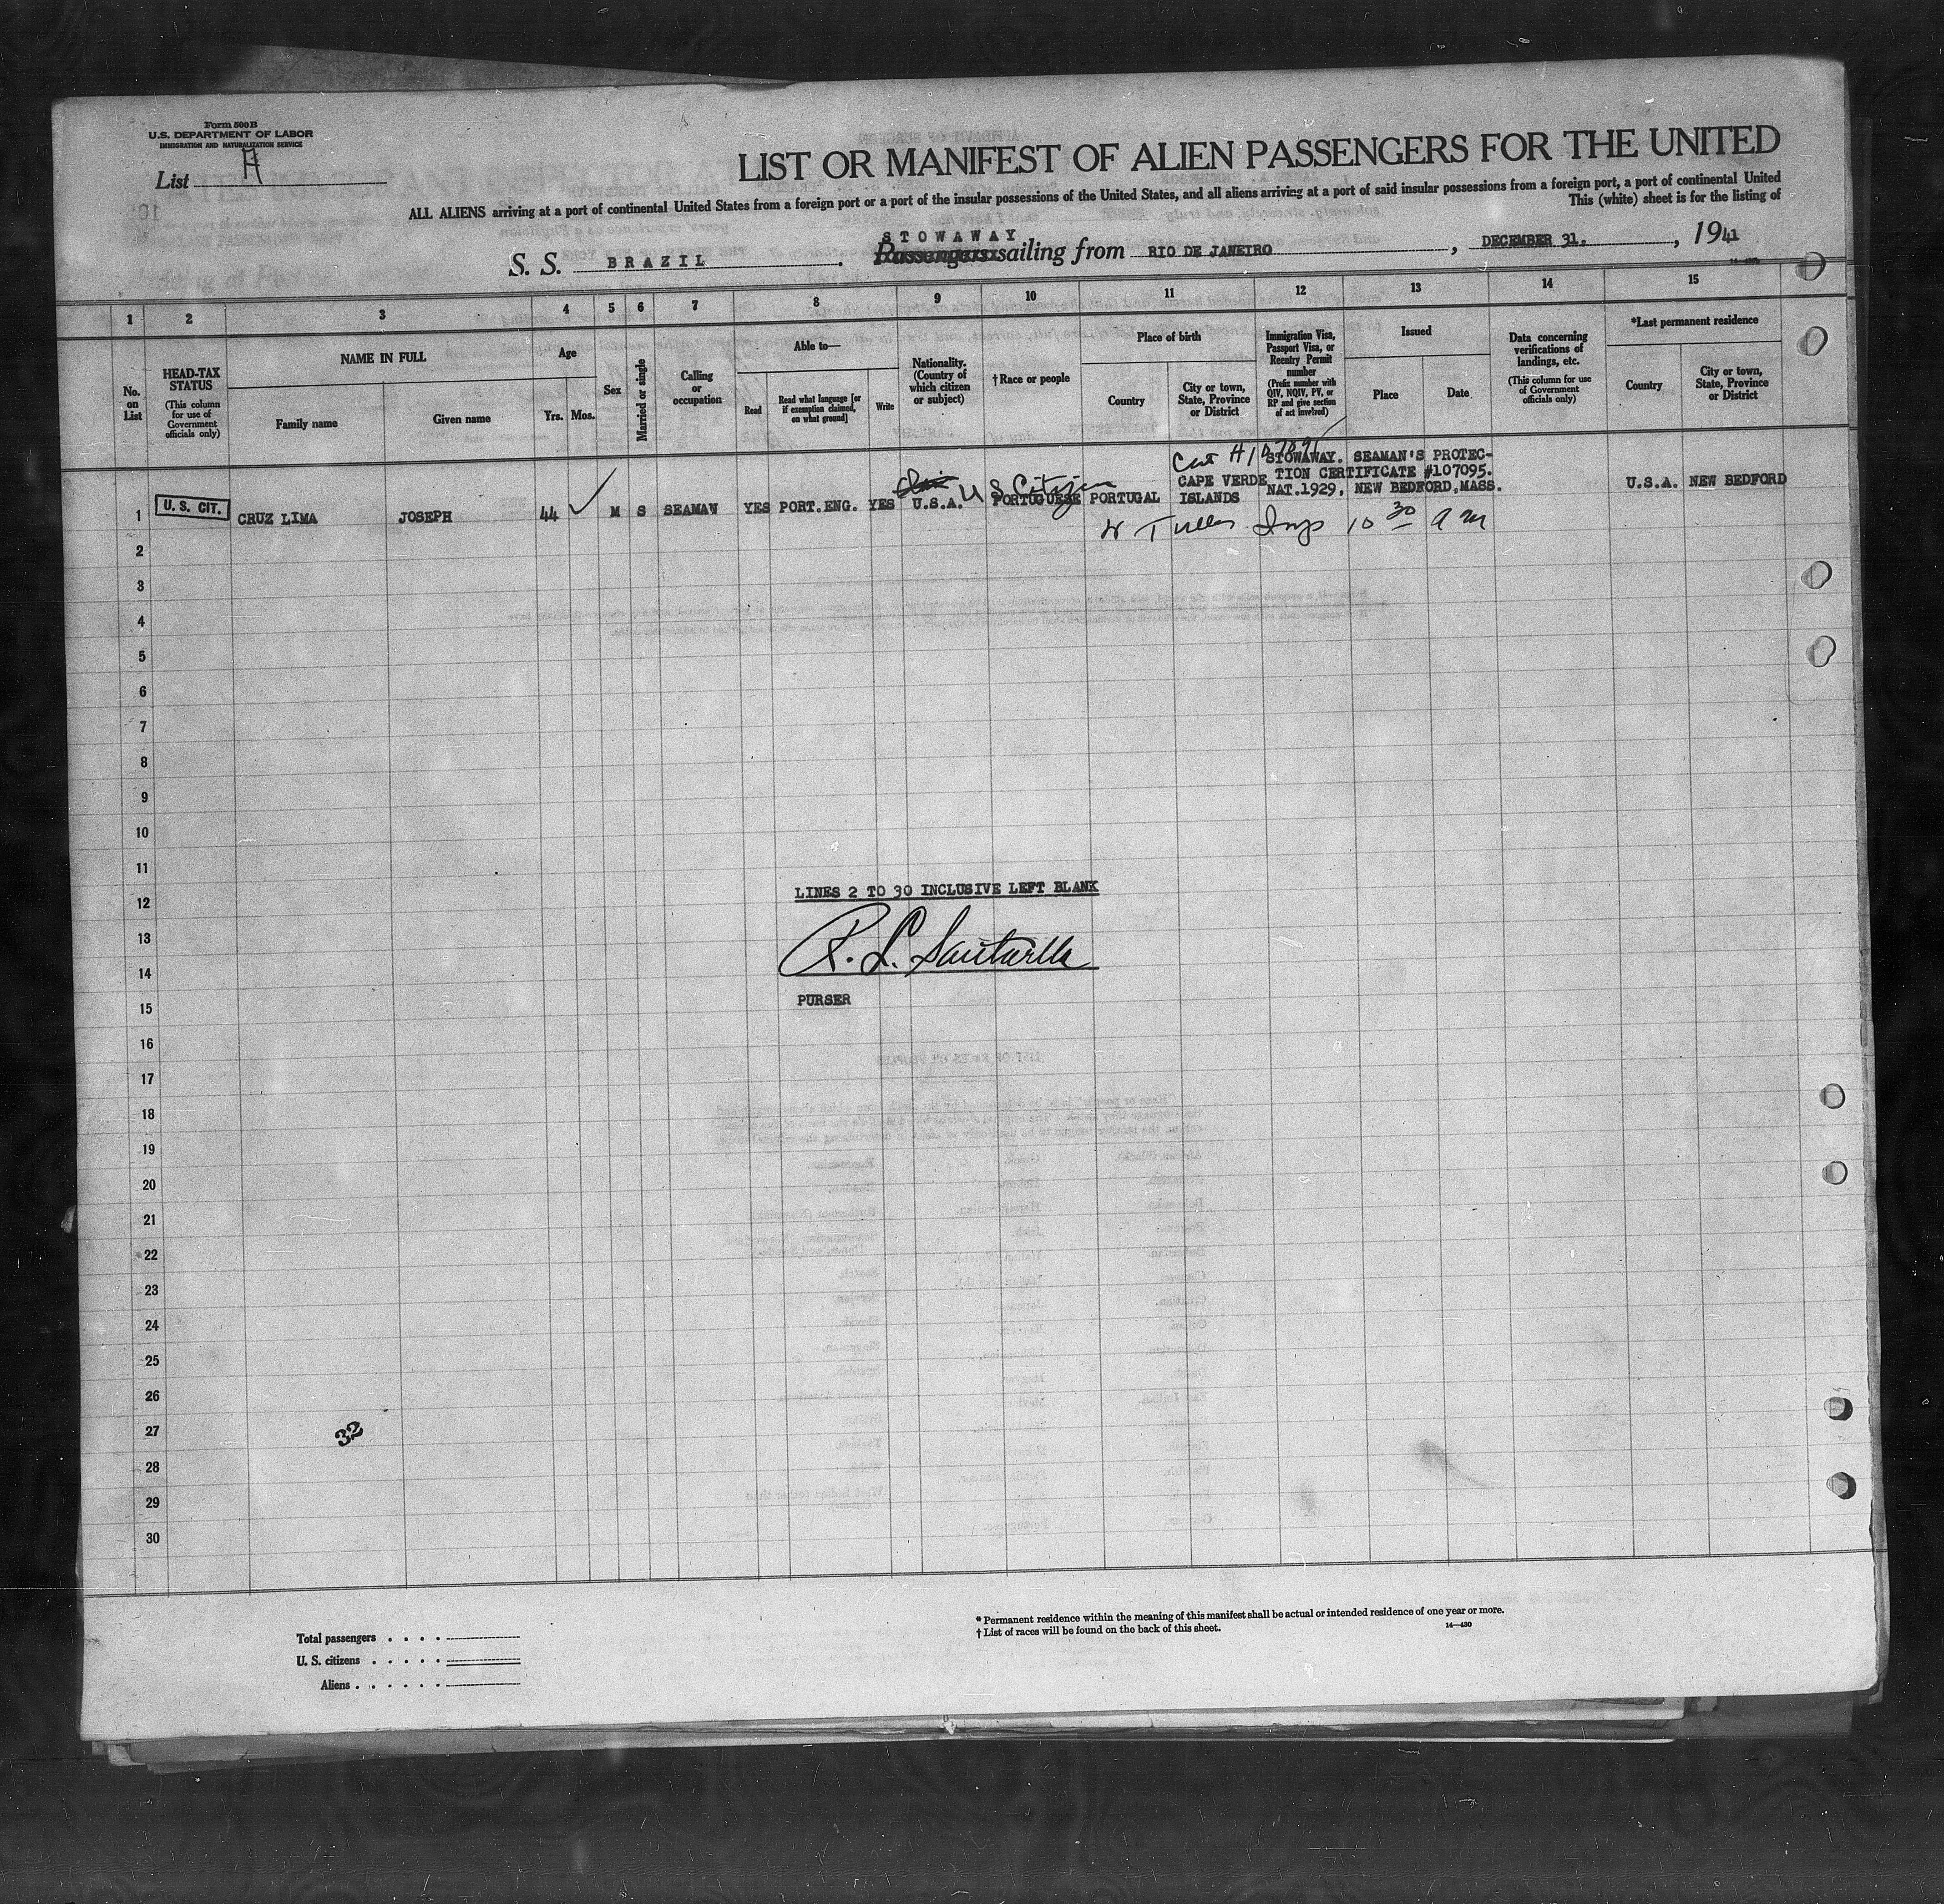 Form 500 B
U.S. DEPARTMENT OF LABOR
IMMIGRATION AND NATURALIZATION SERVICE
List A
LIST OR MANIFEST OF ALIEN PASSENGERS FOR THE UNITED
ALL ALIENS arriving at a port of continental United States from a foreign port or a port of the insular possessions of the United States, and all aliens arriving at a port of said insular possessions from a foreign port, a port of continental United
This (white) sheet is for the listing of
STOWAWAY
S. S. BRAZIL . Passengers sailing from RIO DE JANEIRO , DECEMBER 31. , 1941
1 2 3 4 5 6 7 8 9 10 11 12 13 14 15
No. on List
HEAD-TAX STATUS
(This column for use of Government officials only)
NAME IN FULL
Family name
Given name
Age
Yrs. Mos.
Sex
Married or single
Calling or occupation
Able to—
Read
Read what language [or if exemption claimed, on what ground]
Write
Nationality. (Country of which citizen or subject)
† Race or people
Place of birth
Country
City or town, State, Province or District
Immigration Visa, Passport Visa, or Reentry Permit number
(Prefix number with QIV, NQIV, PV, or RP and give section of act involved)
Issued
Place
Date
Data concerning verifications of landings, etc.
(This column for use of Government officials only)
*Last permanent residence
Country
City or town, State, Province or District
1 U. S. CIT. CRUZ LIMA JOSEPH 44 M S SEAMAN YES PORT. ENG. YES U.S.A. U S Citizen PORTUGUESE PORTUGAL CAPE VERDE ISLANDS
STOWAWAY. SEAMAN'S PROTEC-
TION CERTIFICATE #107095.
NAT.1929, NEW BEDFORD, MASS.
U.S.A. NEW BEDFORD
Insp 10 30 a m
2
3
4
5
6
7
8
9
10
11
LINES 2 TO 30 INCLUSIVE LEFT BLANK
12
13
14
PURSER
15
16
17
18
19
20
21
22
23
24
25
26
27
32
28
29
30
Total passengers
U. S. citizens
Aliens
* Permanent residence within the meaning of this manifest shall be actual or intended residence of one year or more.
† List of races will be found on the back of this sheet.
14—430